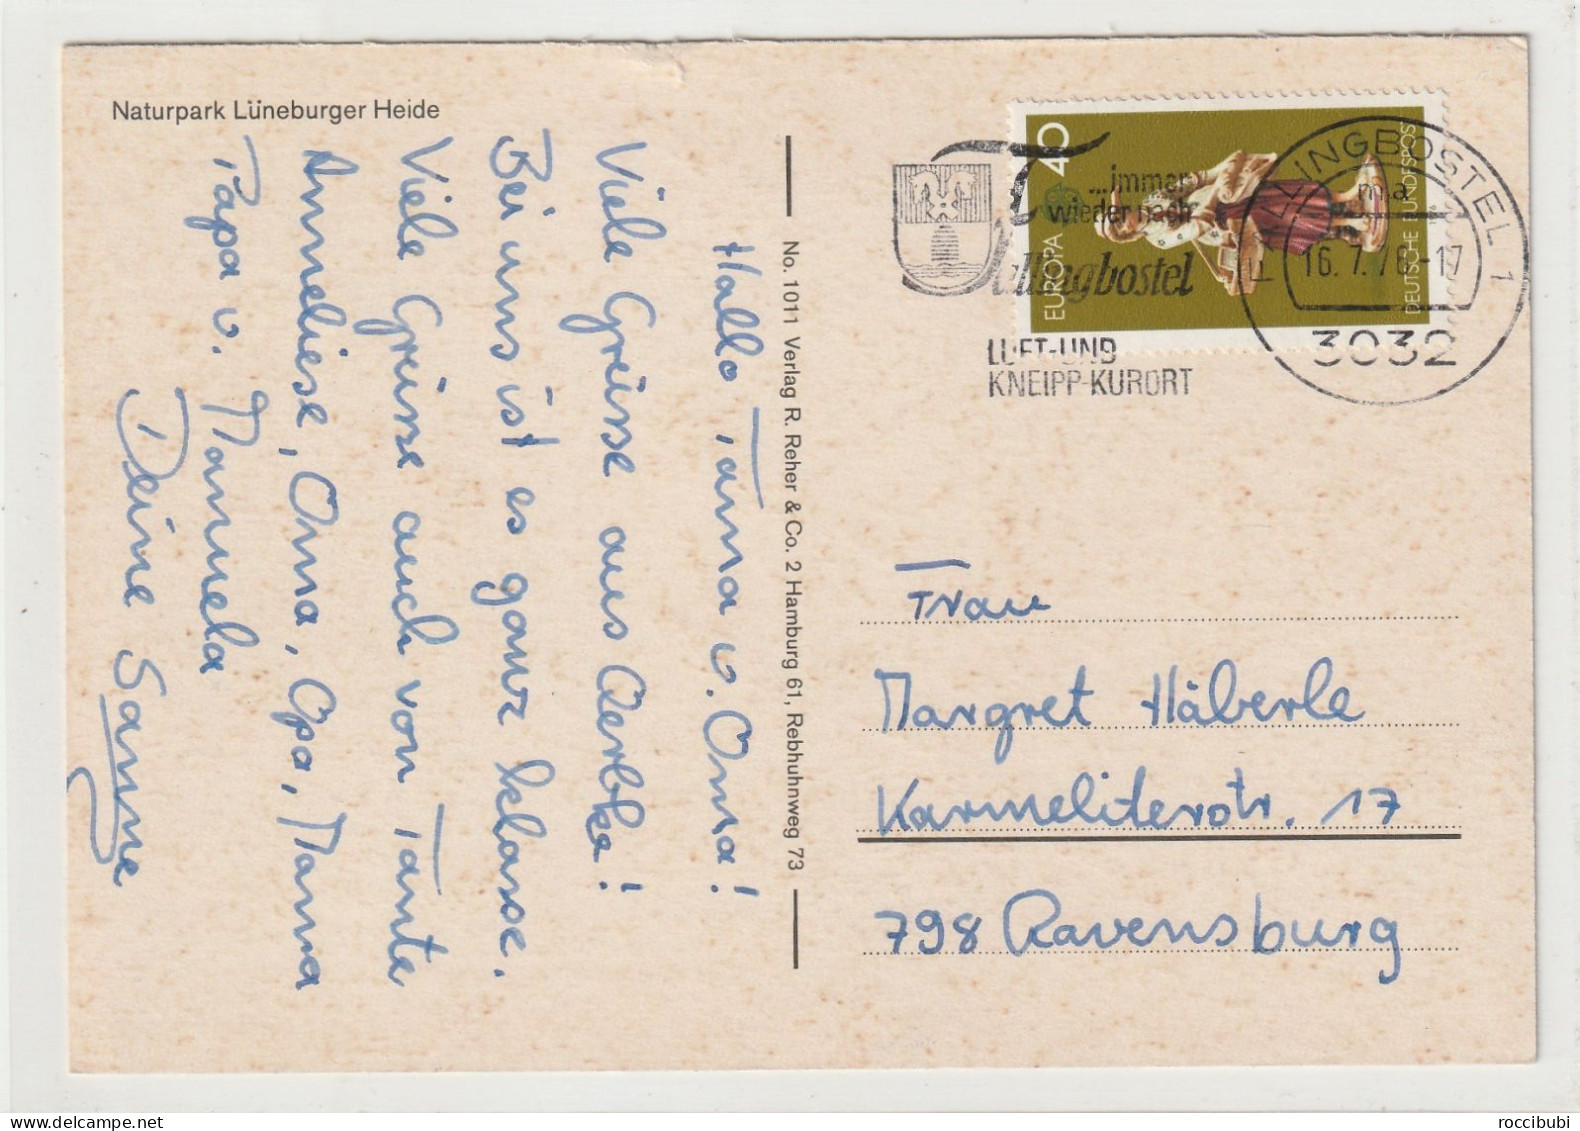 Naturpark Lüneburger Heide
Hallo Tanna u. Oma!
Viele Grüsse aus Oerbke!
Bei uns ist es ganz klasse.
Viele Grüsse auch von Tante
Anneliese, Oma, Opa, Mama
Papa u. Manuela
Deine Sanne
No. 1011 Verlag R. Reher & Co. 2 Hamburg 61, Rebhuhnweg 73
...immer
wieder nach
Fallingbostel
LUFT-UND
KNEIPP-KURORT
EUROPA 40
DEUTSCHE BUNDESPOST
FALLINGBOSTEL 1
ma
16.7.76-17
3032
Frau
Margret Häberle
Karmeliterstr. 17
798 Ravensburg
roccibubi